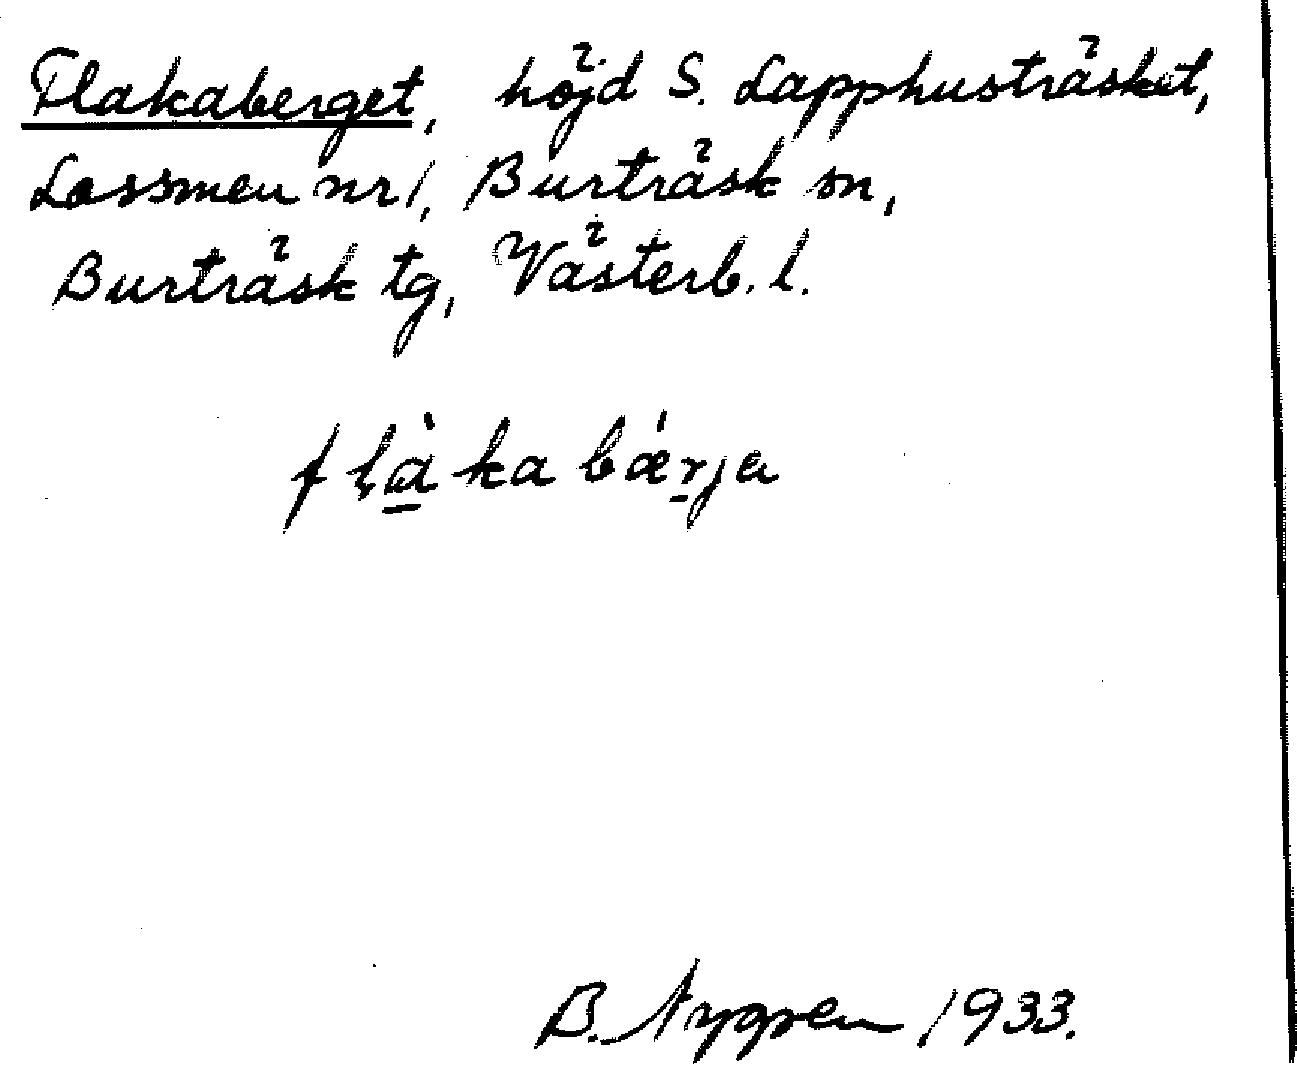 Flakaberget, höjd S. Lapphusträsket,
Lossmen nr 1, Burträsk sn,
Burträsk tg, Västerb. l.
flàka bǽrja
B. Nygren 1933.